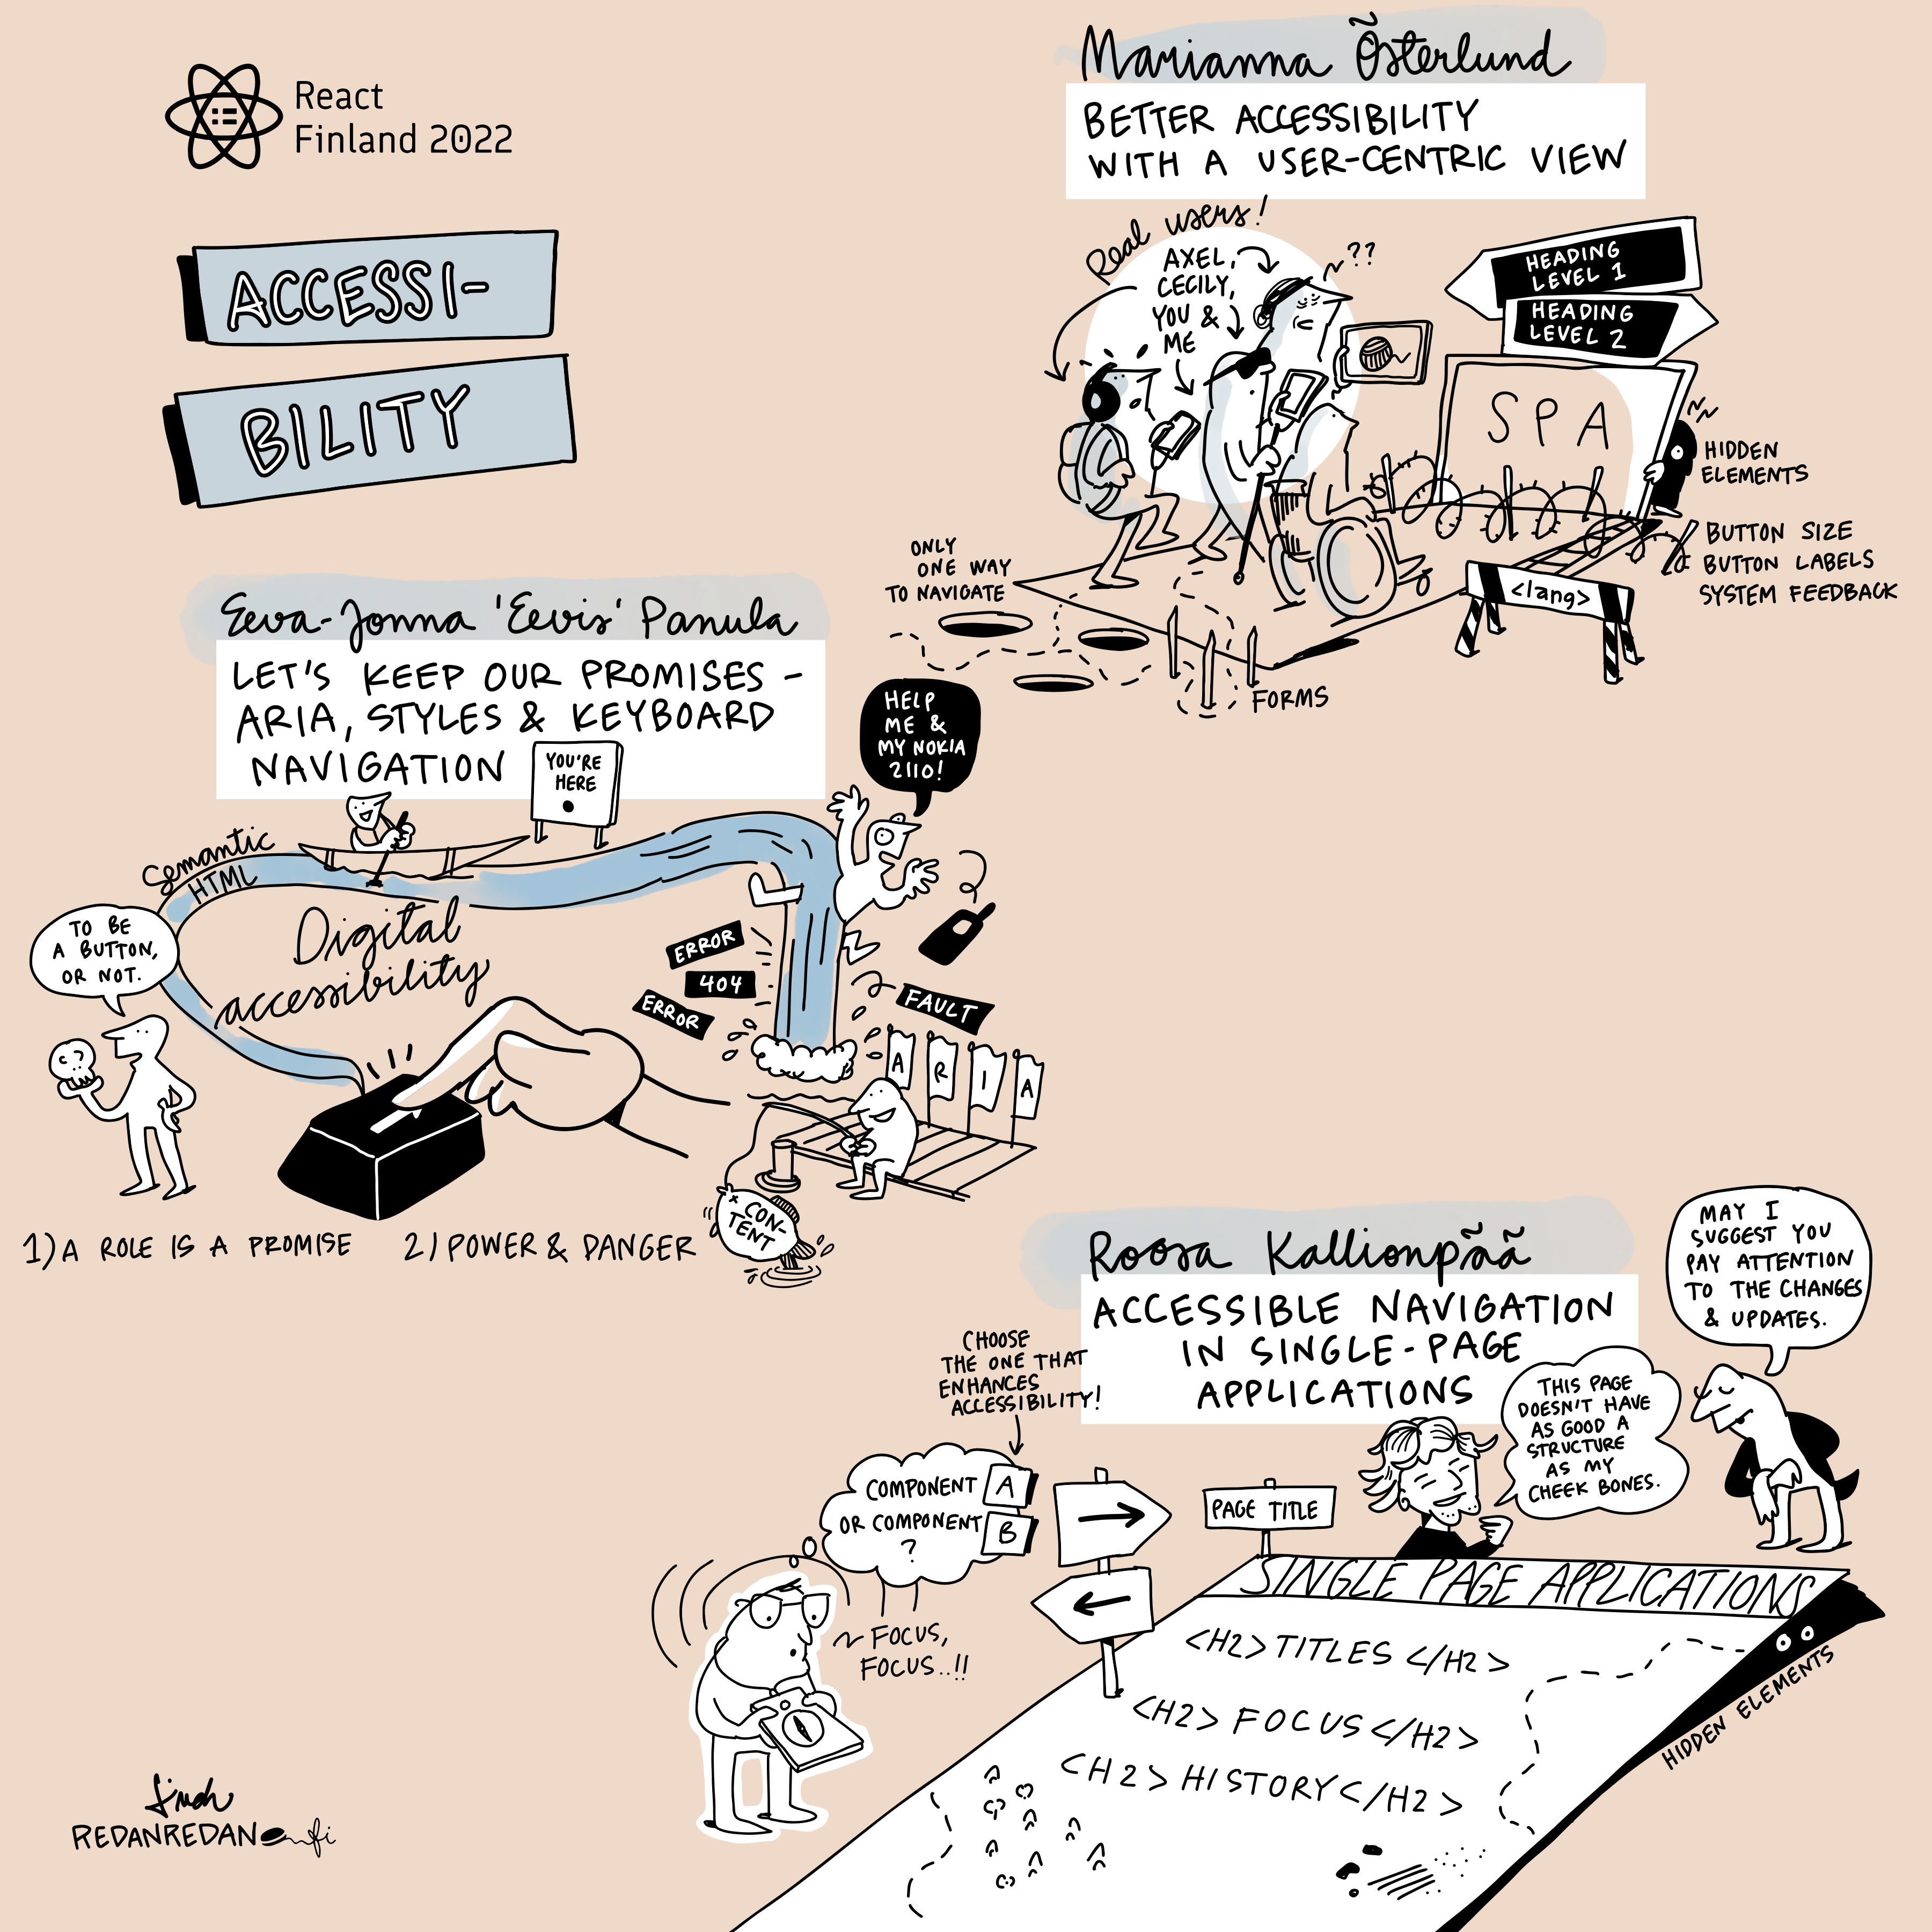 React
Finland 2022
ACCESSI-
BILITY
Marianna Österlund
BETTER ACCESSIBILITY
WITH A USER-CENTRIC VIEW
Real users!
AXEL,
CECILY,
YOU &
ME
??
HEADING
LEVEL 1
HEADING
LEVEL 2
SPA
HIDDEN
ELEMENTS
BUTTON SIZE
BUTTON LABELS
SYSTEM FEEDBACK
<lang>
ONLY
ONE WAY
TO NAVIGATE
FORMS
Eeva-Jonna 'Eevis' Panula
LET'S KEEP OUR PROMISES -
ARIA, STYLES & KEYBOARD
NAVIGATION
YOU'RE
HERE
HELP
ME &
MY NOKIA
2110!
Semantic
HTML
Digital
accessibility
TO BE
A BUTTON,
OR NOT.
ERROR
404
ERROR
FAULT
A R I A
CON-
TENT
1) A ROLE IS A PROMISE
2) POWER & DANGER
Roosa Kallionpää
ACCESSIBLE NAVIGATION
IN SINGLE-PAGE
APPLICATIONS
MAY I
SUGGEST YOU
PAY ATTENTION
TO THE CHANGES
& UPDATES.
THIS PAGE
DOESN'T HAVE
AS GOOD A
STRUCTURE
AS MY
CHEEK BONES.
CHOOSE
THE ONE THAT
ENHANCES
ACCESSIBILITY!
COMPONENT A
OR COMPONENT B
?
FOCUS,
FOCUS..!!
PAGE TITLE
SINGLE PAGE APPLICATIONS
<H2> TITLES </H2>
<H2> FOCUS </H2>
<H2> HISTORY </H2>
HIDDEN ELEMENTS
REDANREDAN
fi